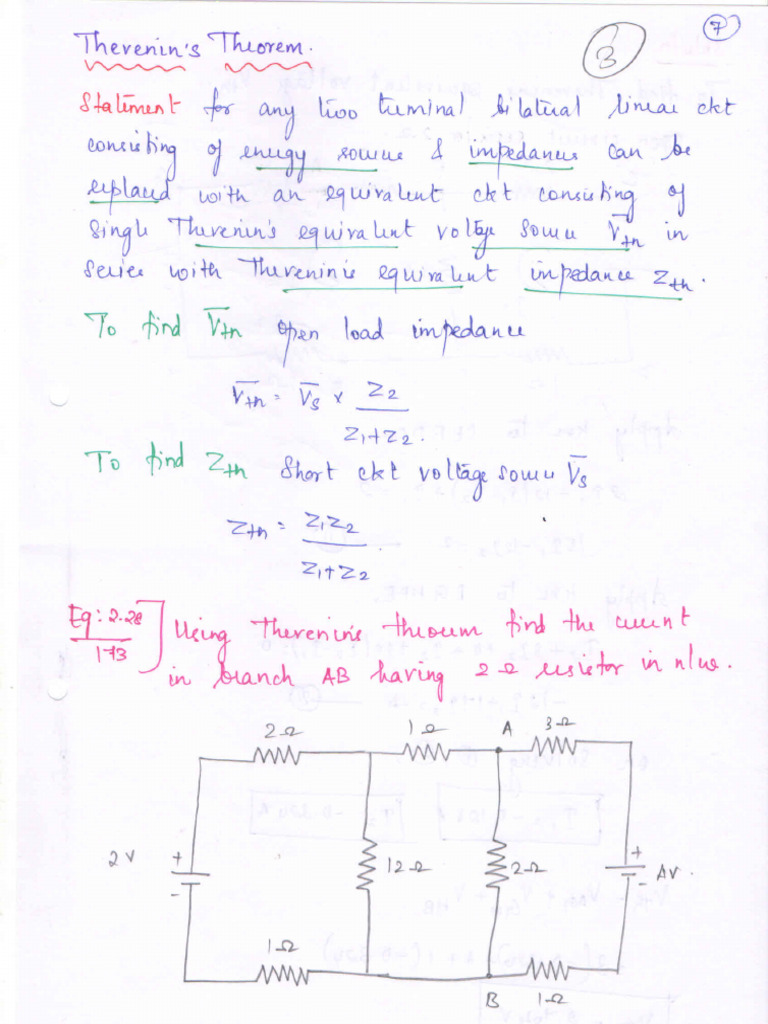 7
3
Thevenin's Theorem.
Statement for any two terminal bilateral linear ckt
consisting of energy source & impedances can be
replaced with an equivalent ckt consisting of
single Thevenin's equivalent voltage source V̅th in
series with Thevenin's equivalent impedance Zth.
To find V̅th open load impedance
V̅th = V̅s × Z2 / Z1+Z2.
To find Zth Short ckt voltage source V̅s
Zth = Z1Z2 / Z1+Z2
Eg: 2.28
173
Using Thevenin's theorem find the current
in branch AB having 2Ω resistor in n/w.
2Ω 1Ω A 3Ω
2V + - 12Ω 2Ω + - AV.
1Ω B 1Ω